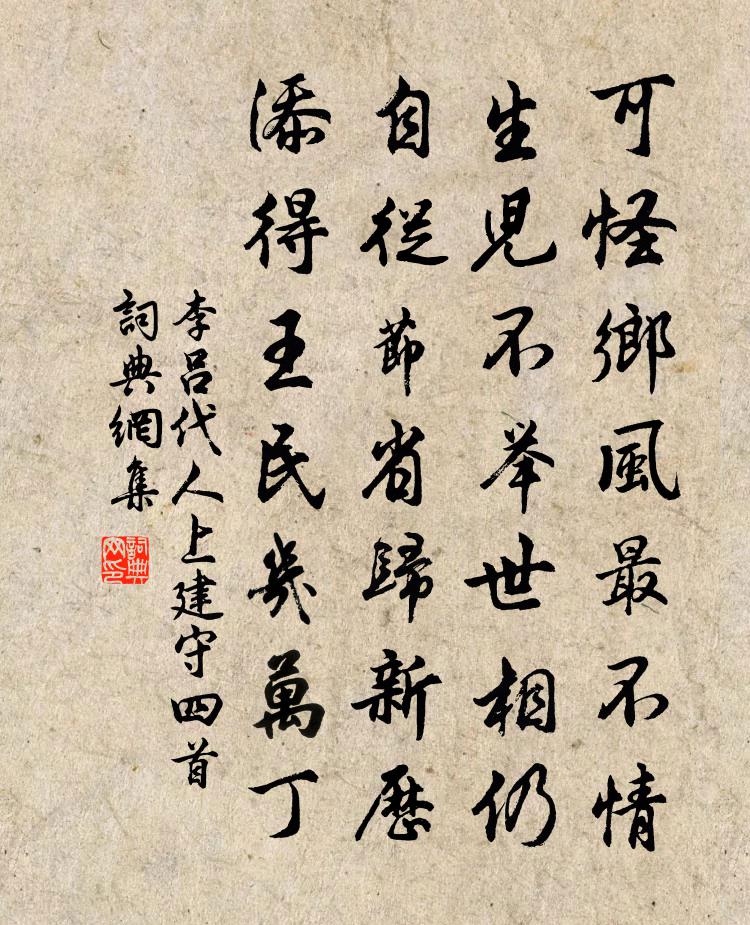 可怪鄉風最不情
生児不举世相仍
自從節省歸新歷
添得王民幾萬丁
李呂代人上建守四首
詞典網集
詞典網印